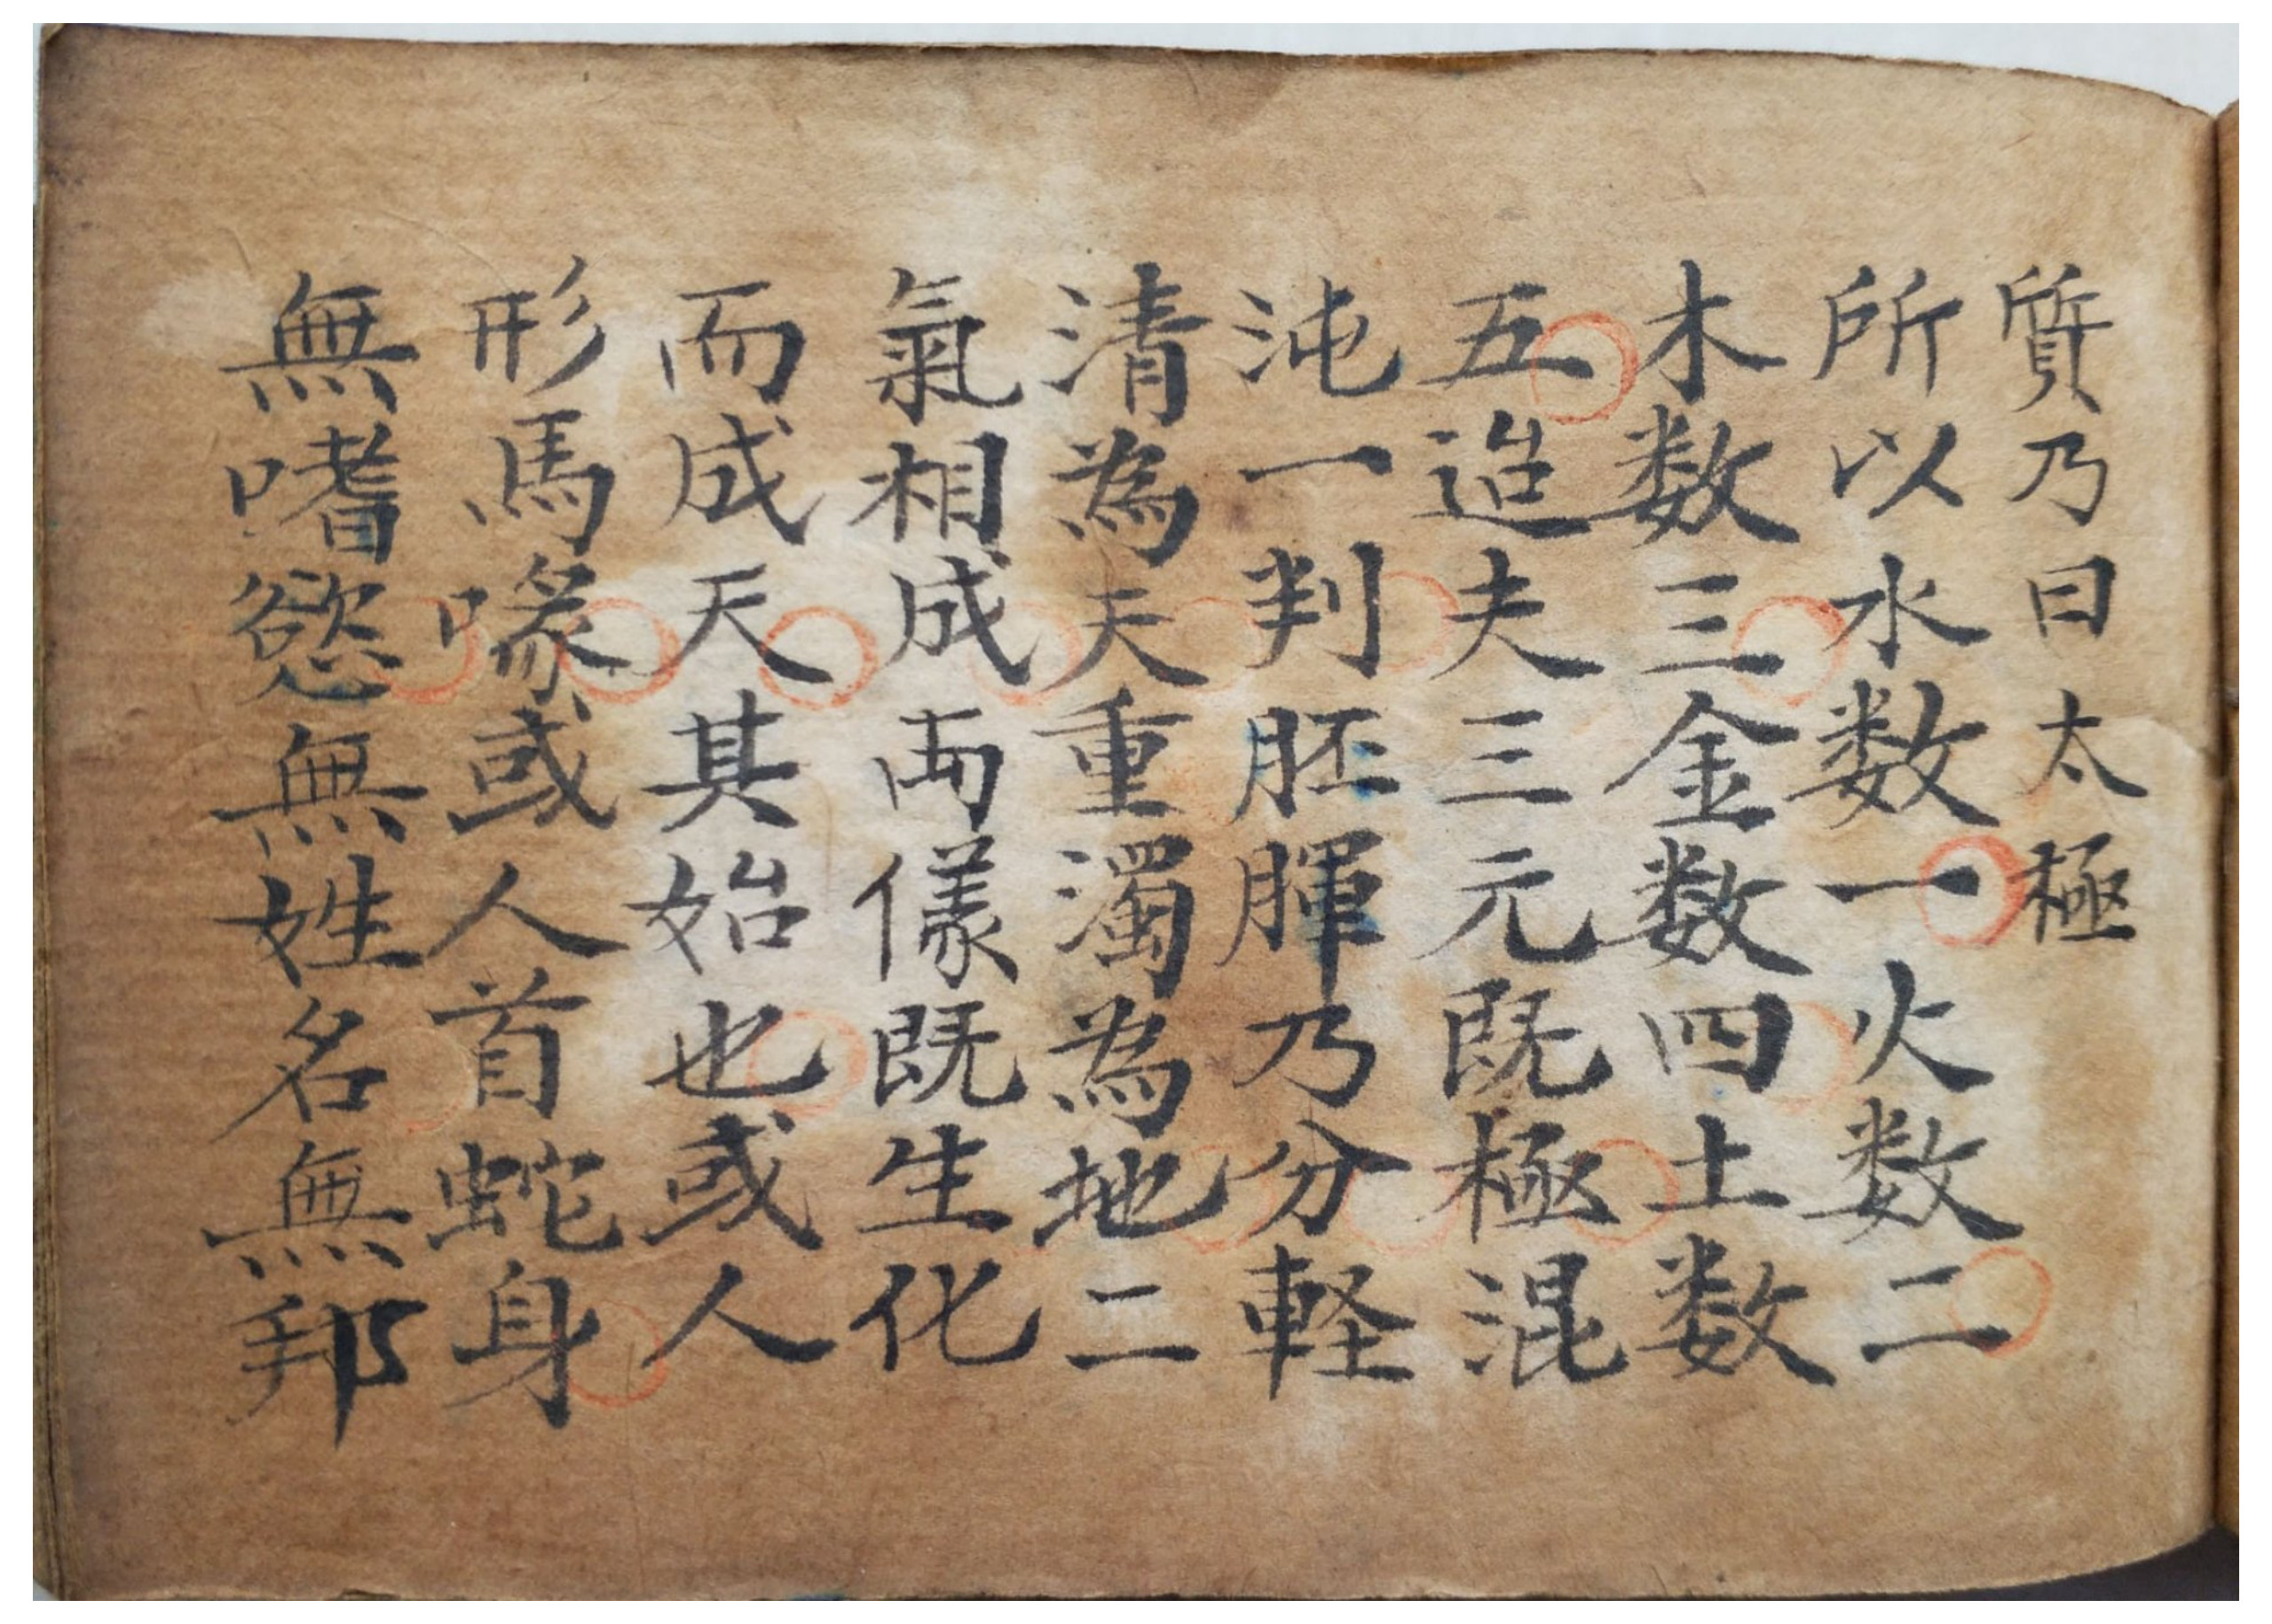 質乃曰太極
所以水数一火数二
木数三金数四土数
五迨夫三元既極混
沌一判胚腪乃分軽
清為天重濁為地二
氣相成両儀既生化
而成天其始也或人
形馬喙或人首蛇身
無嗜慾無姓名無邦